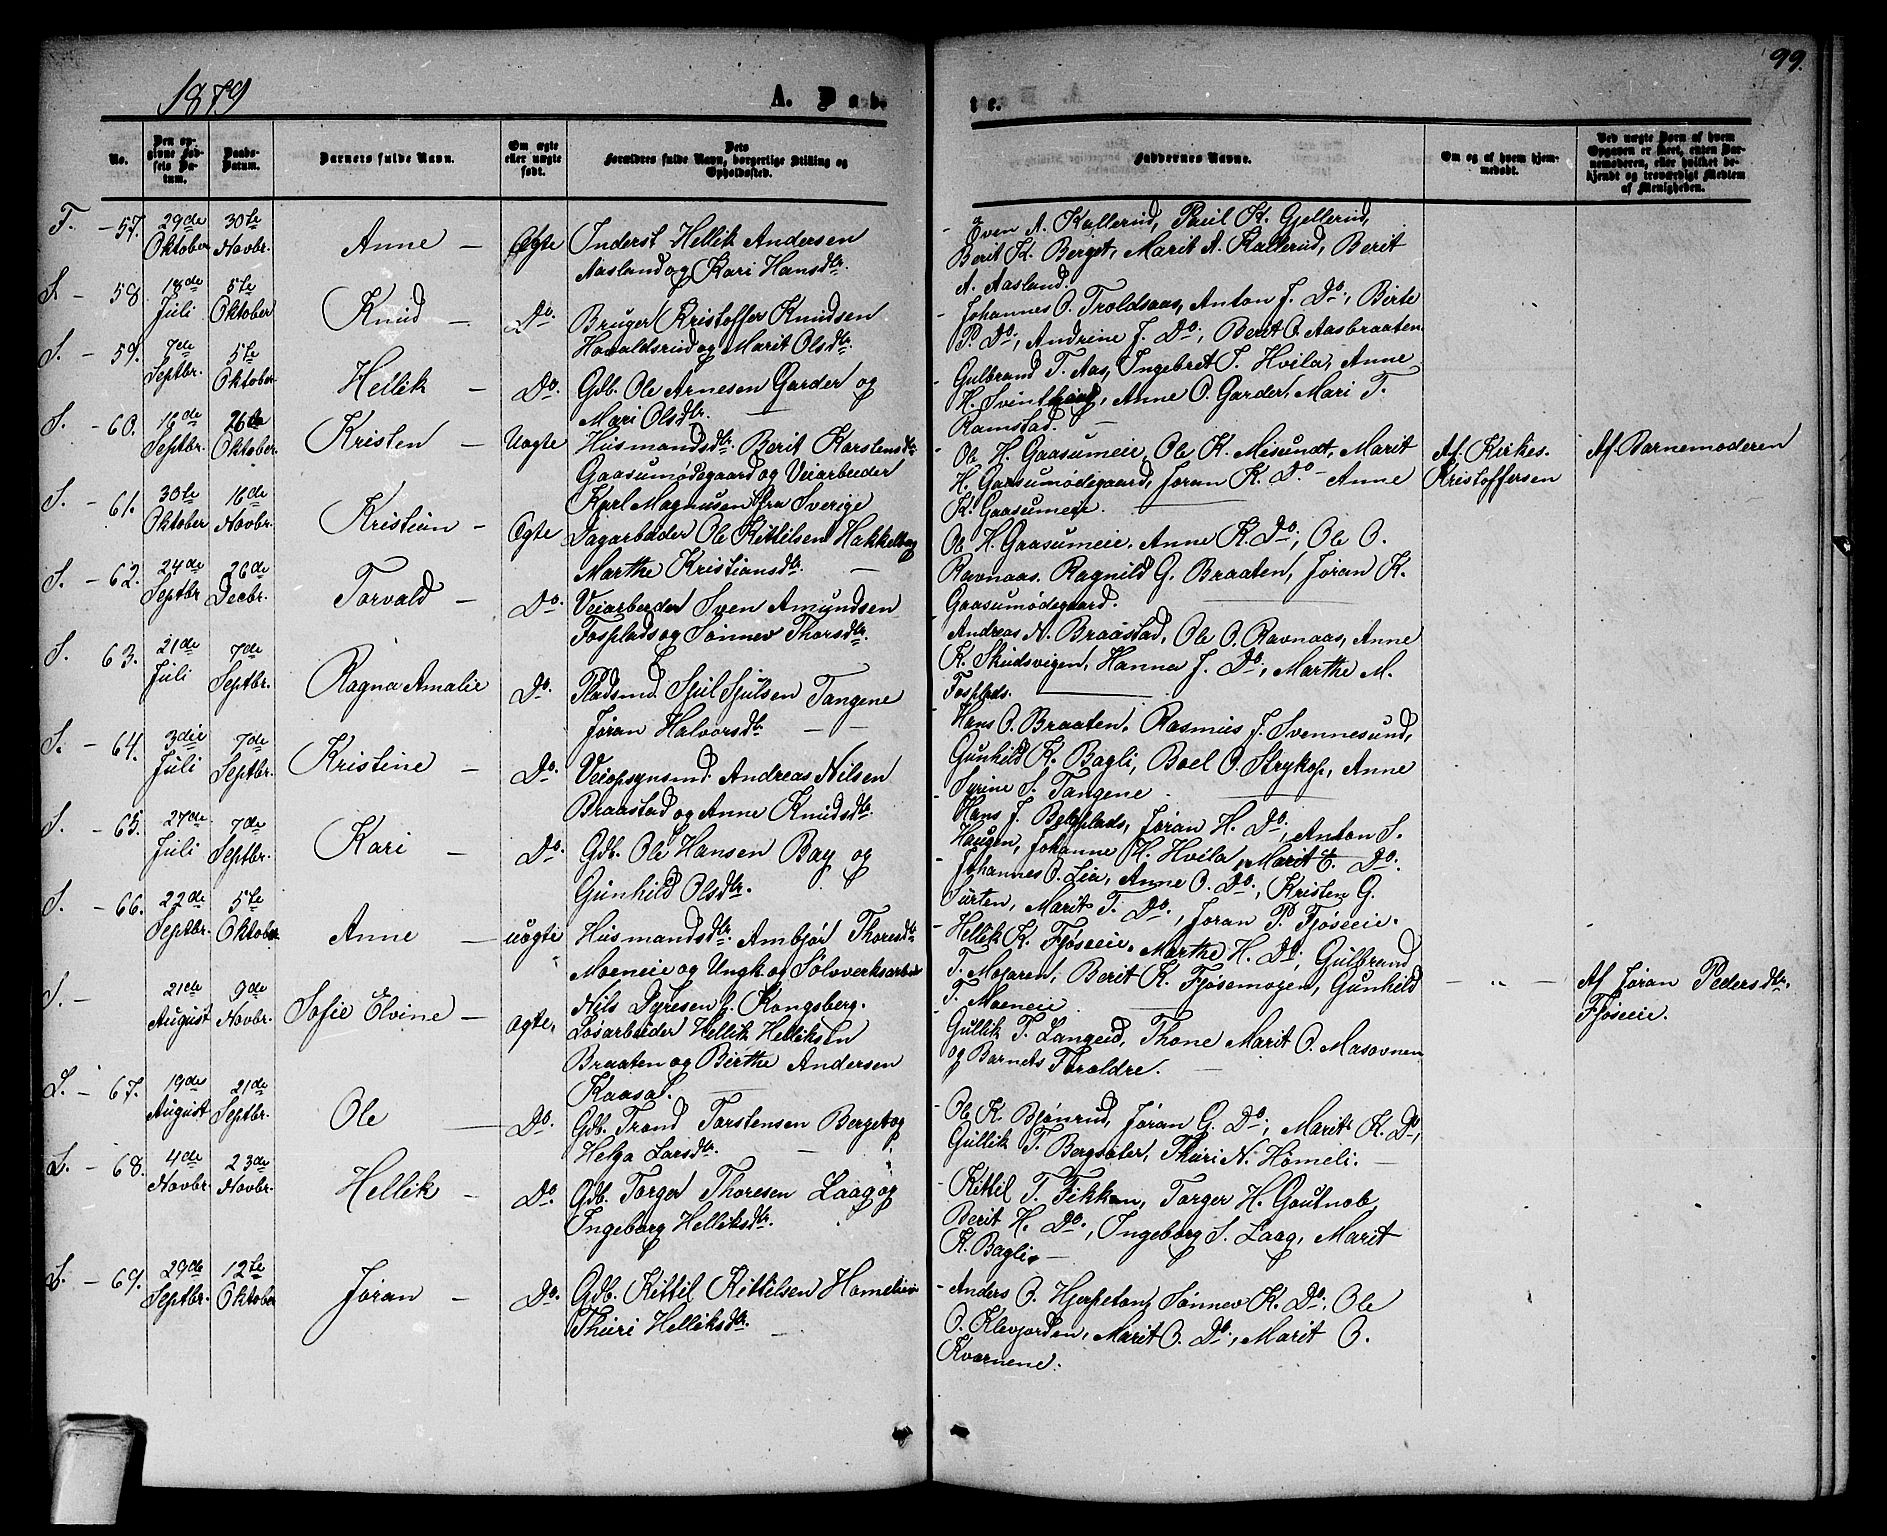 1879
A. Daab-
te.
99.
No.
Den opgivne Fødsels Datum.
Daabs-Datum.
Barnets fulde Navn.
Om ægte eller uægte født.
Dets Forældres fulde Navn, borgerlige Stilling og Opholdssted.
Faddernes Navne.
Om og af hvem hjemmedøbt.
Ved uægte Børn af hvem Opgaven er skeet, enten Barnemoderen, eller hvilket bekjendt og troværdigt Medlem af Menigheden.
T. - 57. 29de Oktober 30te Novbr. Anne - Ægte Inderst Hellik Andersen
Aasland og Kari Hansdtr.
- Even A. Kallerud, Paul K. Gjellerud,
Berit K. Berget, Marit A. Kallerud, Berit
A. Aasland.
S. - 58. 18de Juli 5te Oktober Knud - Do. Bruger Kristoffer Knudsen
Havaldsrud og Marit Olsdtr.
- Johannes O. Troldsaas, Anton J. Do, Birte
P. Do, Andrine J. Do, Berit O. Aasbraaten
S. - 59. 7de Septbr. 5te Oktober Hellik - Do. Gdb. Ole Arnesen Garder og
Mari Olsdtr.
- Gulbrand T. Aas, Ingebret T. Hvila, Anne
H. , Anne O. Garder, Mari T.
Ramstad.
S. - 60. 16de Septbr. 26de Oktober Kristen - Uægte Husmandsdtr. Berit Karstensdtr
Gaasumødegaard og Veiarbeider
Karl Magnusen fra Sverige
Ole H. Gaasumeie, Ole K. Misundt, Marit
H. Gaasumødegaard, Jøran K. Do - Anne
K. Gaasumeie.
Af Kirkes.
Kristoffersen
Af Barnemoderen
S. - 61. 30te Oktober 16de Novbr. Kristian - Ægte Dagarbeider Ole Kittilsen Hakkelag
Marthe Kristiansdtr. -
Ole H. Gaasumeie, Anne K. Do, Ole O.
Ravnaas, Ragnild G. Braaten, Jøran K.
Gaasumødegaard.
S. - 62. 24de Septbr. 26de Decbr. Torvald - Do. Veiarbeider Sven Amundsen
Fosplads og Sønnev Thorsdtr.
- Andreas N. Braastad, Ole O. Ravnaas, Anne
K. Skudsvigen, Hanna J. Do, Marthe M.
Fosplads.
S. - 63. 21de Juli 7de Septbr. Ragna Amalie Do. Pladsmd. Sjul Sjulsen Tangene
Jøran Halvorsdtr. - -
- Hans O. Braaten, Rasmus J. Svennesund,
Gunhild K. Bagli, Boel O. Strykop, Anne
Syrine S. Tangene.
S. - 64. 3die Juli 7de Septbr. Kristine - Do. Veiopsynsmd. Andreas Nilsen
Braastad og Anne Knudsdtr.
- Hans J. Bergplads, Jøran H. Do, Anton S.
Haugen, Johanne H. Hvila, Marit E. Do.
S. - 65. 27de Juli 7de Septbr. Kari - Do. Gdb. Ole Hansen Bay og
Gunhild Olsdtr.
- Johannes O. Lia, Anne O. Do, Kristen G.
Surten, Marit T. Do., Jøran P. Fjøseeie.
S. - 66. 22de Septbr. 5te Oktober Anne - uægte Husmandsdtr. Ambjør Thoresdtr
Moeneie og Ungk. og Sølvverksarbeider
Nils Dyresen f. Kongsberg.
- Hellik K. Fjøseeie, Marthe H. Do, Gulbrand
T. Mojaren, Berit K. Fjøsemoen, Gunhild
T. Moeneie
- " -
Af Jøran Pedersdtr.
Fjøseeie.
S. - 21de August 9de Novbr. Sofie Elvine - ægte. Løsarbeider Hellik Helliksen
Braaten og Birthe Andersen
Kaasa.
Gullik T. Langeid, Thone Marit O. Masovnen
og Barnets Forældre.
S. - 67. 19de August 21de Septbr. Ole Do. Gdb. Trond Torstensen Berget og
Helga Larsdtr. -
- Ole K. Bjønrud, Jøran G. Do, Marit K. Do,
Gullik T. Bergsæter, Thuri N. Hømeli. -
S. - 68. 4de Novbr. 23de Novbr. Hellik - Do. Gdb. Torger Thoresen Laag og
Ingeborg Helliksdtr.
- Kittil T. Fikkan, Torger H. Goutnob,
Berit H. Do., Ingeborg S. Laag, Marit
K. Bagli. -
S. - 69. 29de Septbr. 12te Oktober Jøran - Do. Gdb. Kittil Kittilsen Homelien
Thuri Helliksdtr. -
- Anders O. Hjerpetan, Sønnev K. Do, Ole
O. Klevjorden, Marit O. Do, Marit O.
Kvernene.